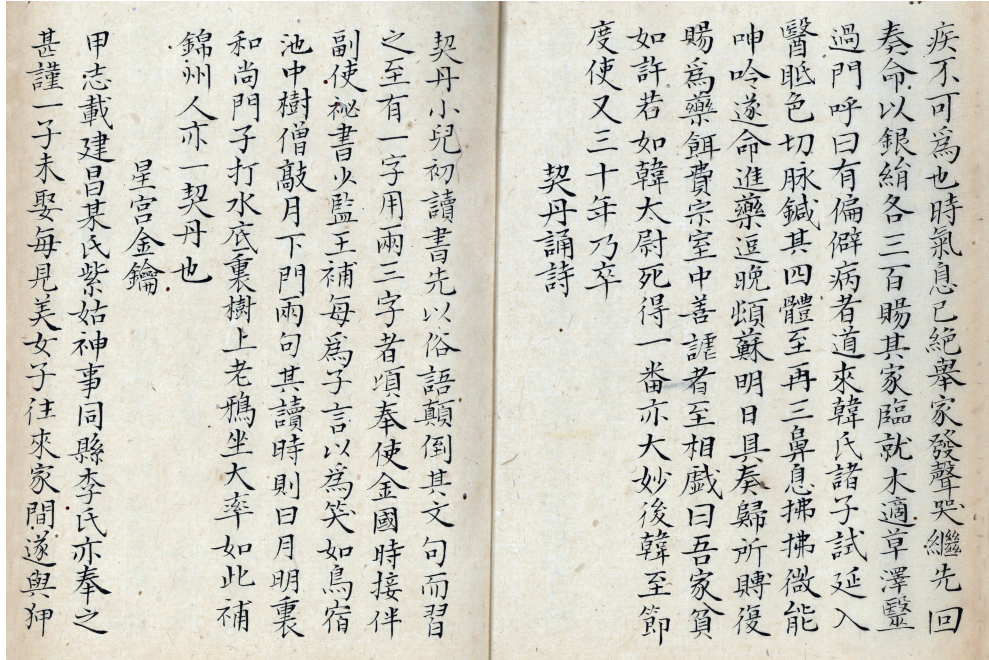 疾不可爲也時氣息已絶舉家發聲哭繼先回
奏命以銀絹各三百賜其家臨就木適草澤醫
過門呼曰有偏僻病者道來韓氏諸子試延入
醫眡色切脉鍼其四體至再三鼻息拂拂微能
呻吟遂命進藥逗晚頓蘇明日具奏歸所賻復
賜爲藥餌費宗室中善謔者至相戯曰吾家貧
如許若如韓太尉死得一番亦大妙後韓至節
度使又三十年乃卒
契丹誦詩
契丹小兒初讀書先以俗語顛倒其文句而習
之至有一字用兩三字者頃奉使金國時接伴
副使祕書少監王補每爲子言以爲笑如鳥宿
池中樹僧敲月下門兩句其讀時則曰月明裏
和尚門子打水底裏樹上老鴉坐大率如此補
錦州人亦一契丹也
星宮金鑰
甲志載建昌某氏紫姑神事同縣李氏亦奉之
甚謹一子未娶每見美女子往來家間遂與狎